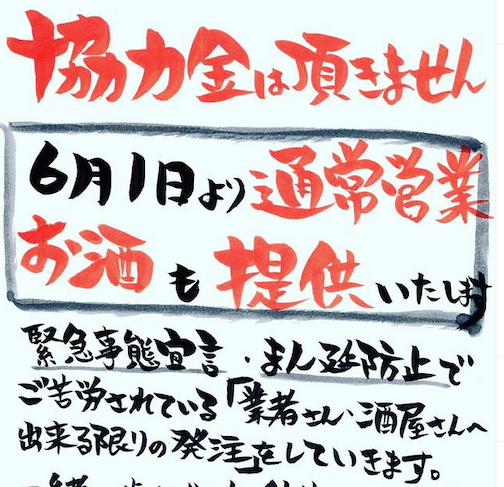 協力金は頂きません
6月1日より通常営業
お酒も提供いたします
緊急事態宣言・まん延防止で
ご苦労されている「業者さん・酒屋さんへ
出来る限りの発注」をしていきます。